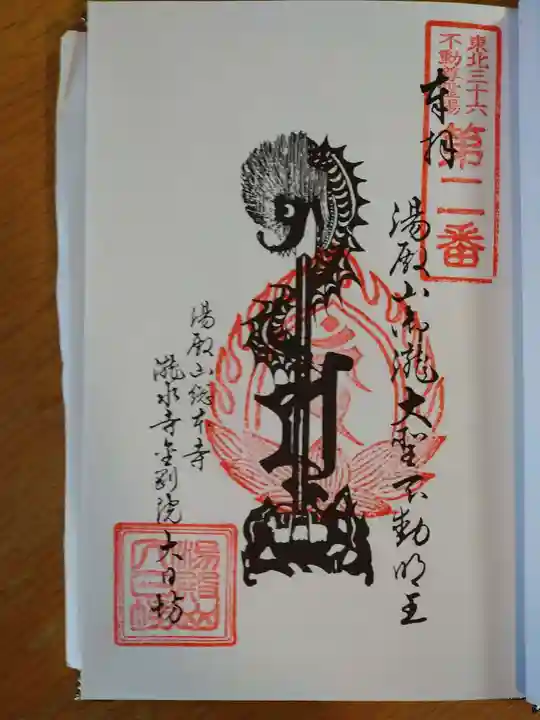 東北三十六
不動尊霊場
第二番
奉拝
湯殿山御瀧大聖不動明王
湯殿山総本寺
瀧水寺金剛院大日坊